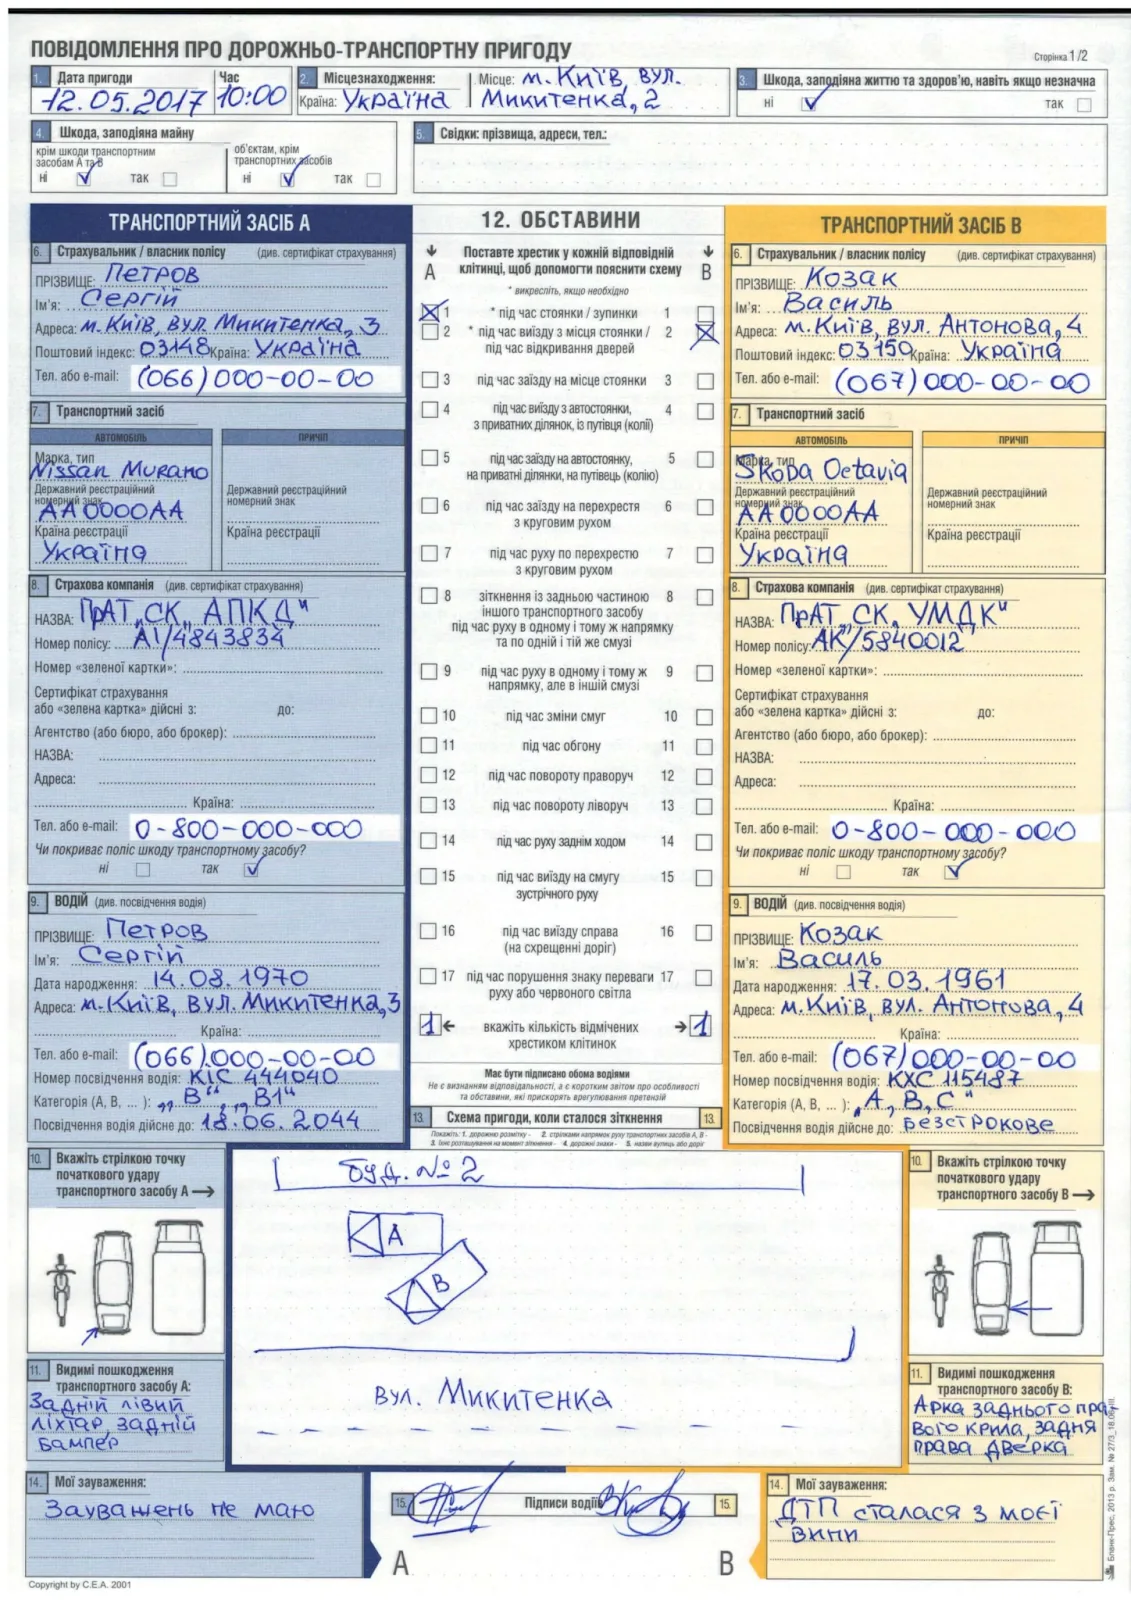 ПОВІДОМЛЕННЯ ПРО ДОРОЖНЬО-ТРАНСПОРТНУ ПРИГОДУ
Сторінка 1/2
1. Дата пригоди Час
12.05.2017 10:00
2. Місцезнаходження:
Країна: Україна
Місце: м. Київ, вул.
Микитенка, 2
3. Шкода, заподіяна життю та здоров'ю, навіть якщо незначна
ні так
4. Шкода, заподіяна майну
крім шкоди транспортним
засобам А та В
ні так
об'єктам, крім
транспортних засобів
ні так
5. Свідки: прізвища, адреси, тел.:
ТРАНСПОРТНИЙ ЗАСІБ А
6. Страхувальник / власник полісу (див. сертифікат страхування)
ПРІЗВИЩЕ: Петров
Ім'я: Сергій
Адреса: м. Київ, вул. Микитенка, 3
Поштовий індекс: 03148 Країна: Україна
Тел. або e-mail: (066) 000-00-00
7. Транспортний засіб
АВТОМОБІЛЬ ПРИЧІП
Марка, тип
Nissan Murano
Державний реєстраційний
номерний знак
АА0000АА
Країна реєстрації
Україна
Державний реєстраційний
номерний знак
Країна реєстрації
8. Страхова компанія (див. сертифікат страхування)
НАЗВА: ПрАТ „СК„ АПКД"
Номер полісу: АІ/4843834
Номер «зеленої картки»:
Сертифікат страхування
або «зелена картка» дійсні з: до:
Агентство (або бюро, або брокер):
НАЗВА:
Адреса:
Країна:
Тел. або e-mail: 0-800-000-000
Чи покриває поліс шкоду транспортному засобу?
ні так
9. ВОДІЙ (див. посвідчення водія)
ПРІЗВИЩЕ: Петров
Ім'я: Сергій
Дата народження: 14.08.1970
Адреса: м. Київ, вул. Микитенка, 3
Країна:
Тел. або e-mail: (066) 000-00-00
Номер посвідчення водія: КІС 444040
Категорія (А, В, ... ): „В", „В1"
Посвідчення водія дійсне до: 18.06.2044
12. ОБСТАВИНИ
А Поставте хрестик у кожній відповідній В
клітинці, щоб допомогти пояснити схему
* викресліть, якщо необхідно
1 * під час стоянки / зупинки 1
2 * під час виїзду з місця стоянки / 2
під час відкривання дверей
3 під час заїзду на місце стоянки 3
4 під час виїзду з автостоянки, 4
з приватних ділянок, із путівця (колії)
5 під час заїзду на автостоянку, 5
на приватні ділянки, на путівець (колію)
6 під час заїзду на перехрестя 6
з круговим рухом
7 під час руху по перехрестю 7
з круговим рухом
8 зіткнення із задньою частиною 8
іншого транспортного засобу
під час руху в одному і тому ж напрямку
та по одній і тій же смузі
9 під час руху в одному і тому ж 9
напрямку, але в іншій смузі
10 під час зміни смуг 10
11 під час обгону 11
12 під час повороту праворуч 12
13 під час повороту ліворуч 13
14 під час руху заднім ходом 14
15 під час виїзду на смугу 15
зустрічного руху
16 під час виїзду справа 16
(на схрещенні доріг)
17 під час порушення знаку переваги 17
руху або червоного світла
1 вкажіть кількість відмічених 1
хрестиком клітинок
Має бути підписано обома водіями
Не є визнанням відповідальності, а є коротким звітом про особливості
та обставини, які прискорять врегулювання претензій
ТРАНСПОРТНИЙ ЗАСІБ В
6. Страхувальник / власник полісу (див. сертифікат страхування)
ПРІЗВИЩЕ: Козак
Ім'я: Василь
Адреса: м. Київ, вул. Антонова, 4
Поштовий індекс: 03150 Країна: Україна
Тел. або e-mail: (067) 000-00-00
7. Транспортний засіб
АВТОМОБІЛЬ ПРИЧІП
Марка, тип
Skoda Octavia
Державний реєстраційний
номерний знак
АА0000АА
Країна реєстрації
Україна
Державний реєстраційний
номерний знак
Країна реєстрації
8. Страхова компанія (див. сертифікат страхування)
НАЗВА: ПрАТ „СК„ УМДК"
Номер полісу: АК/5840012
Номер «зеленої картки»:
Сертифікат страхування
або «зелена картка» дійсні з: до:
Агентство (або бюро, або брокер):
НАЗВА:
Адреса:
Країна:
Тел. або e-mail: 0-800-000-000
Чи покриває поліс шкоду транспортному засобу?
ні так
9. ВОДІЙ (див. посвідчення водія)
ПРІЗВИЩЕ: Козак
Ім'я: Василь
Дата народження: 17.03.1961
Адреса: м. Київ, вул. Антонова, 4
Країна:
Тел. або e-mail: (067) 000-00-00
Номер посвідчення водія: КХС 115487
Категорія (А, В, ... ): „А, В, С"
Посвідчення водія дійсне до: безстрокове
13. Схема пригоди, коли сталося зіткнення 13.
Покажіть: 1. дорожню розмітку - 2. стрілками напрямок руху транспортних засобів А, В -
3. їхнє розташування на момент зіткнення - 4. дорожні знаки - 5. назви вулиць або доріг
буд. №2
А
В
вул. Микитенка
10. Вкажіть стрілкою точку
початкового удару
транспортного засобу А
11. Видимі пошкодження
транспортного засобу А:
Задній лівий
ліхтар, задній
бампер
10. Вкажіть стрілкою точку
початкового удару
транспортного засобу В
11. Видимі пошкодження
транспортного засобу В:
Арка заднього пра-
вого крила, задня
права дверка
14. Мої зауваження:
Зауважень не маю
15. Підписи водіїв 15.
А В
14. Мої зауваження:
ДТП сталася з моєї
вини
Copyright by C.E.A. 2001